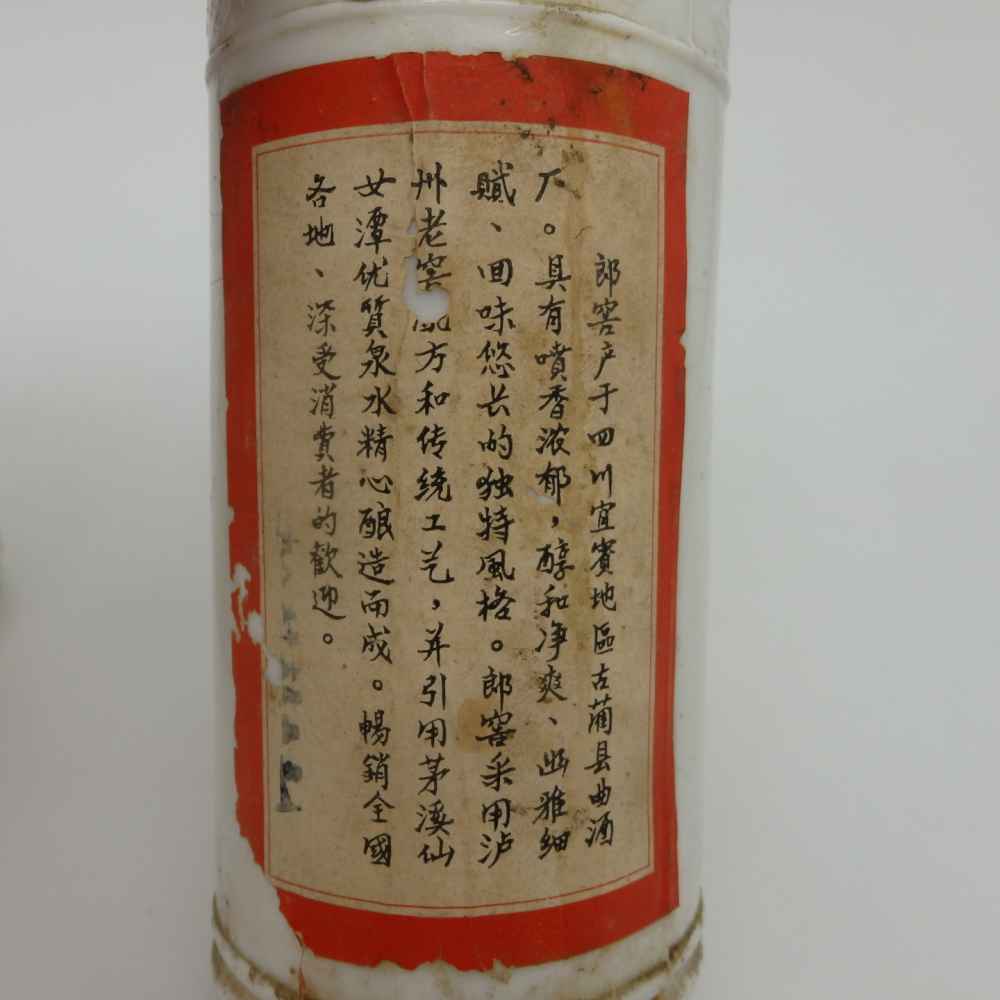 郎窖产于四川宜賓地區古藺县曲酒
厂。具有噴香浓郁,醇和净爽、幽雅细
膩、回味悠长的独特風格。郎窖采用泸
州老窖方和传统工艺,并引用茅溪仙
女潭优質泉水精心酿造而成。暢銷全國
各地、深受消費者的歡迎。